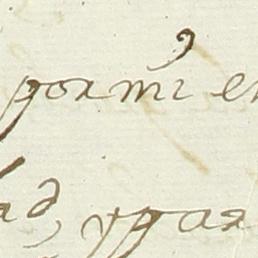 por mi en
ad, y par